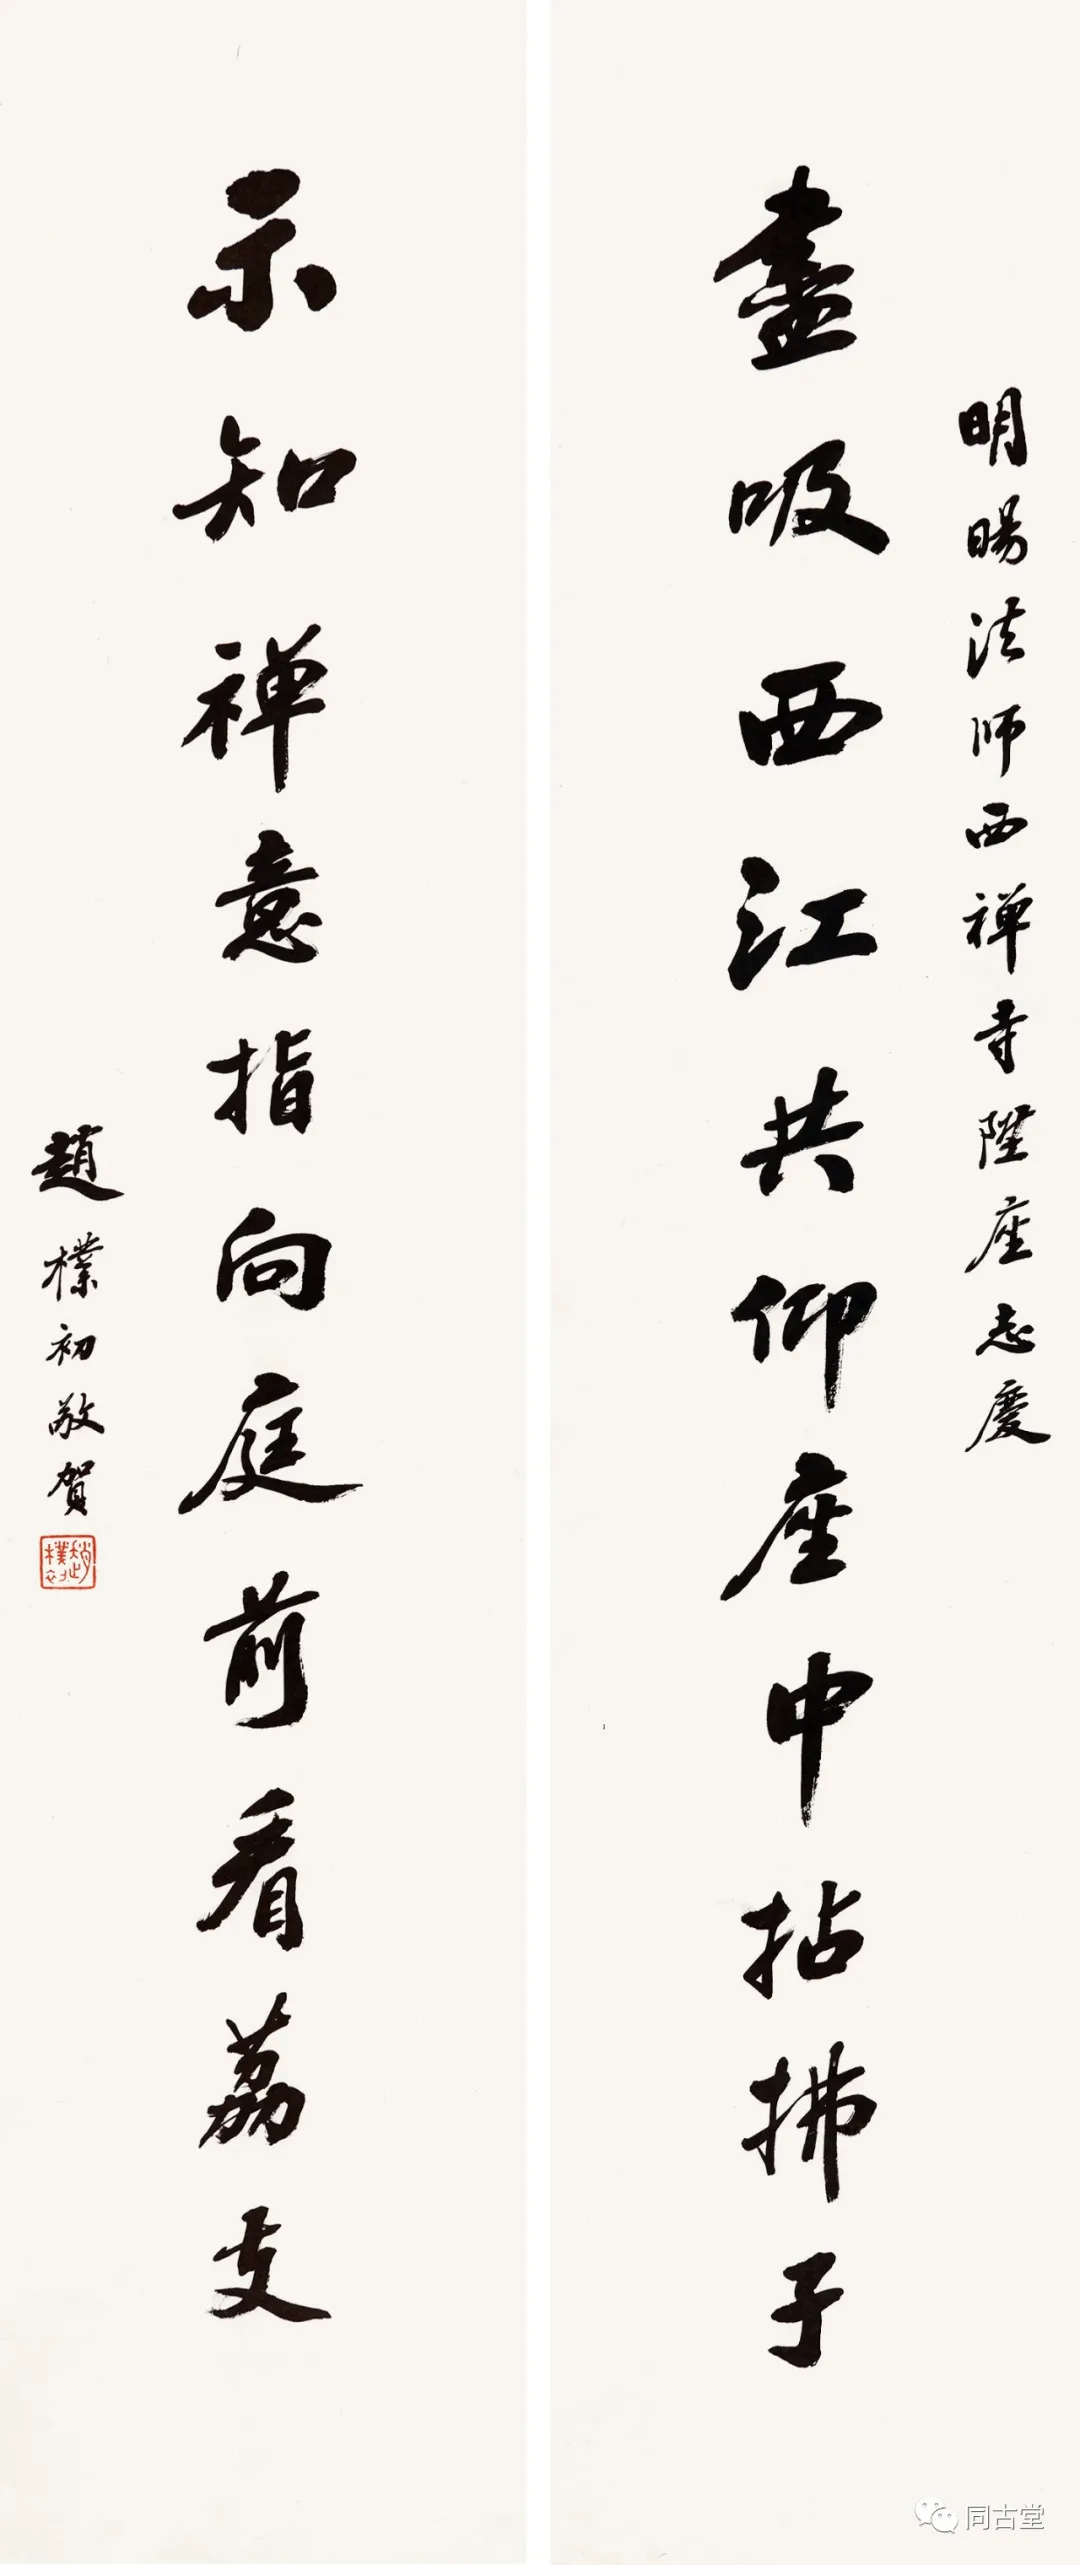 明暘法师西禅寺陞座志慶
盡吸西江共仰座中拈拂子
示知禅意指向庭前看荔支
趙樸初敬賀
趙樸初
同古堂